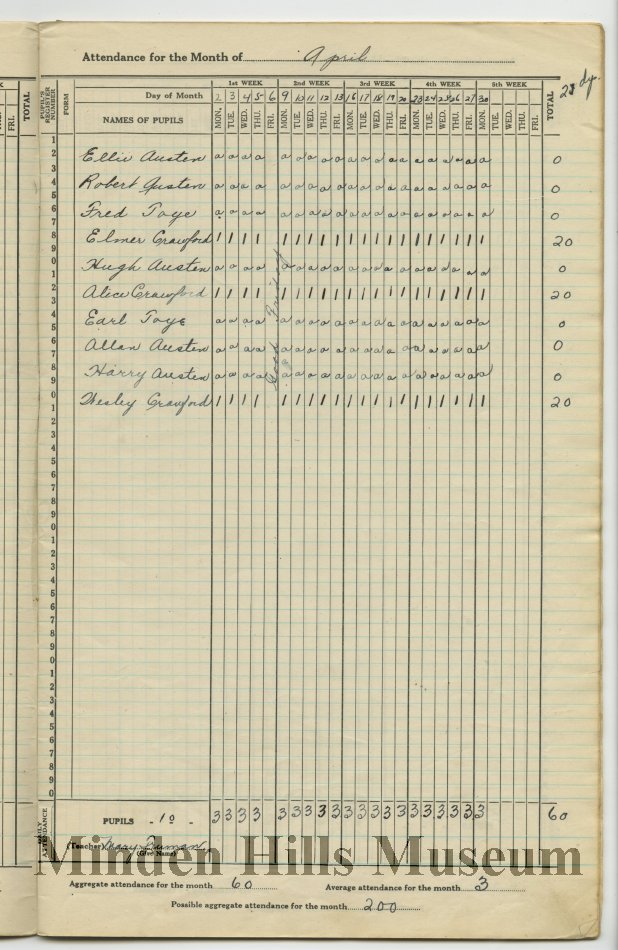 Attendance for the Month of April
23 dys.
TOTAL
FRI.
PUPIL'S REGISTER NUMBER
FORM
1st WEEK 2nd WEEK 3rd WEEK 4th WEEK 5th WEEK
TOTAL
Day of Month 2 3 4 5 6 9 10 11 12 13 16 17 18 19 20 23 24 25 26 27 30
NAMES OF PUPILS MON. TUE. WED. THU. FRI. MON. TUE. WED. THU. FRI. MON. TUE. WED. THU. FRI. MON. TUE. WED. THU. FRI. MON. TUE. WED. THU. FRI.
1
2 Ellie Austen a a a a a a a a a a a a a a a a a a a a 0
3
4 Robert Austen a a a a a a a a a a a a a a a a a a a a 0
5
6 Fred Toye a a a a a a a a a a a a a a a a a a a a 0
7
8 Elmer Crawford 1 1 1 1 1 1 1 1 1 1 1 1 1 1 1 1 1 1 1 1 20
9
0 Hugh Austen a a a a a a a a a a a a a a a a a a a a 0
1
2 Alice Crawford 1 1 1 1 1 1 1 1 1 1 1 1 1 1 1 1 1 1 1 1 20
3
4 Earl Toye a a a a a a a a a a a a a a a a a a a a 0
5
6 Allan Austen a a a a a a a a a a a a a a a a a a a a 0
7
8 Harry Austen a a a a a a a a a a a a a a a a a a a a 0
9
0 Wesley Crawford 1 1 1 1 1 1 1 1 1 1 1 1 1 1 1 1 1 1 1 1 20
Good Friday
1
2
3
4
5
6
7
8
9
0
1
2
3
4
5
6
7
8
9
0
1
2
3
4
5
6
7
8
9
0
DAILY ATTENDANCE
PUPILS - 10 3 3 3 3 3 3 3 3 3 3 3 3 3 3 3 3 3 3 3 3 60
(Teacher) Mary
(Give Name)
Minden Hills Museum
Aggregate attendance for the month 60 Average attendance for the month 3
Possible aggregate attendance for the month 200